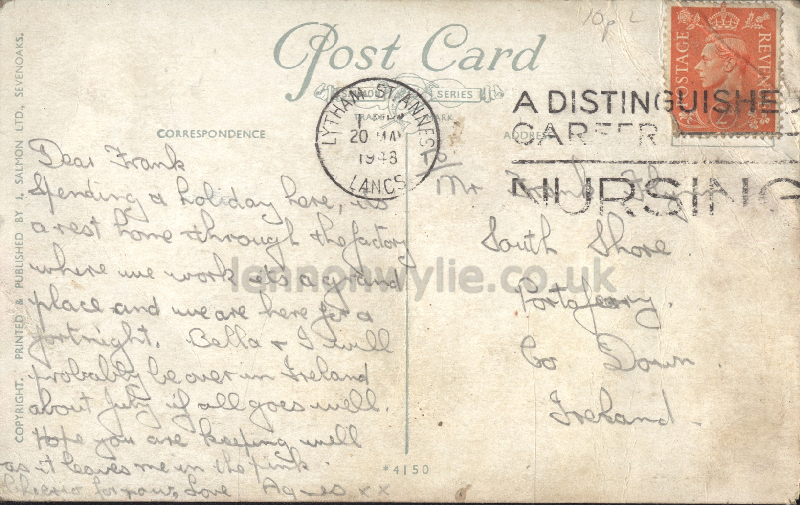 10p L
Post Card
SALMON SERIES
TRADE MARK
CORRESPONDENCE
ADDRESS
LYTHAM ST. ANNES
20 MAY
1948
LANCS
A DISTINGUISHED
CAREER
NURSING
POSTAGE REVENUE
Dear Frank
Spending a holiday here, its
a rest home through the factory
where we work its a grand
place and we are here for a
fortnight. Bella & I will
probably be over in Ireland
about July if all goes well.
Hope you are keeping well
as it leaves me in the pink.
Cheerio for now, Love Agnes x x
To/
Mr Frank
South Shore
Portaferry.
Co Down
Ireland.
*4150
COPYRIGHT. PRINTED & PUBLISHED BY J. SALMON LTD., SEVENOAKS.
lennonwylie.co.uk